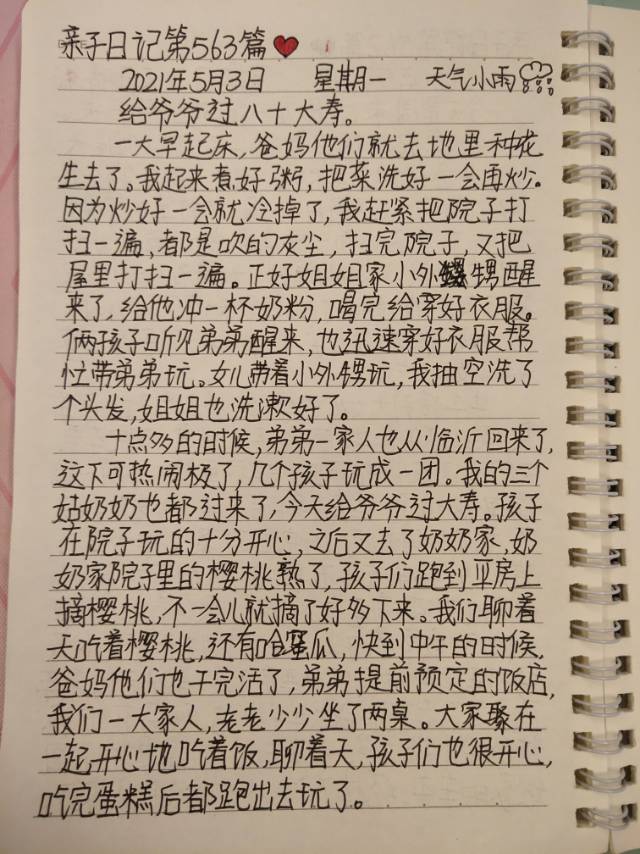 亲子日记第563篇
2021年5月3日 星期一 天气小雨
给爷爷过八十大寿。
一大早起床,爸妈他们就去地里种花
生去了。我起来煮好粥,把菜洗好一会再炒。
因为炒好一会就冷掉了,我赶紧把院子打
扫一遍,都是吹的灰尘,扫完院子,又把
屋里打扫一遍。正好姐姐家小外甥醒
来了,给他冲一杯奶粉,喝完给穿好衣服。
俩孩子听见弟弟醒来,也迅速穿好衣服帮
忙带弟弟玩。女儿带着小外甥玩,我抽空洗了
个头发,姐姐也洗漱好了。
十点多的时候,弟弟一家人也从临沂回来了,
这下可热闹极了,几个孩子玩成一团。我的三个
姑奶奶也都过来了,今天给爷爷过大寿。孩子
在院子玩的十分开心,之后又去了奶奶家,奶
奶家院子里的樱桃熟了,孩子们跑到平房上
摘樱桃,不一会儿就摘了好多下来。我们聊着
天吃着樱桃,还有哈蜜瓜,快到中午的时候,
爸妈他们也干完活了,弟弟提前预定的饭店,
我们一大家人,老老少少坐了两桌。大家聚在
一起开心地吃着饭,聊着天,孩子们也很开心,
吃完蛋糕后都跑出去玩了。